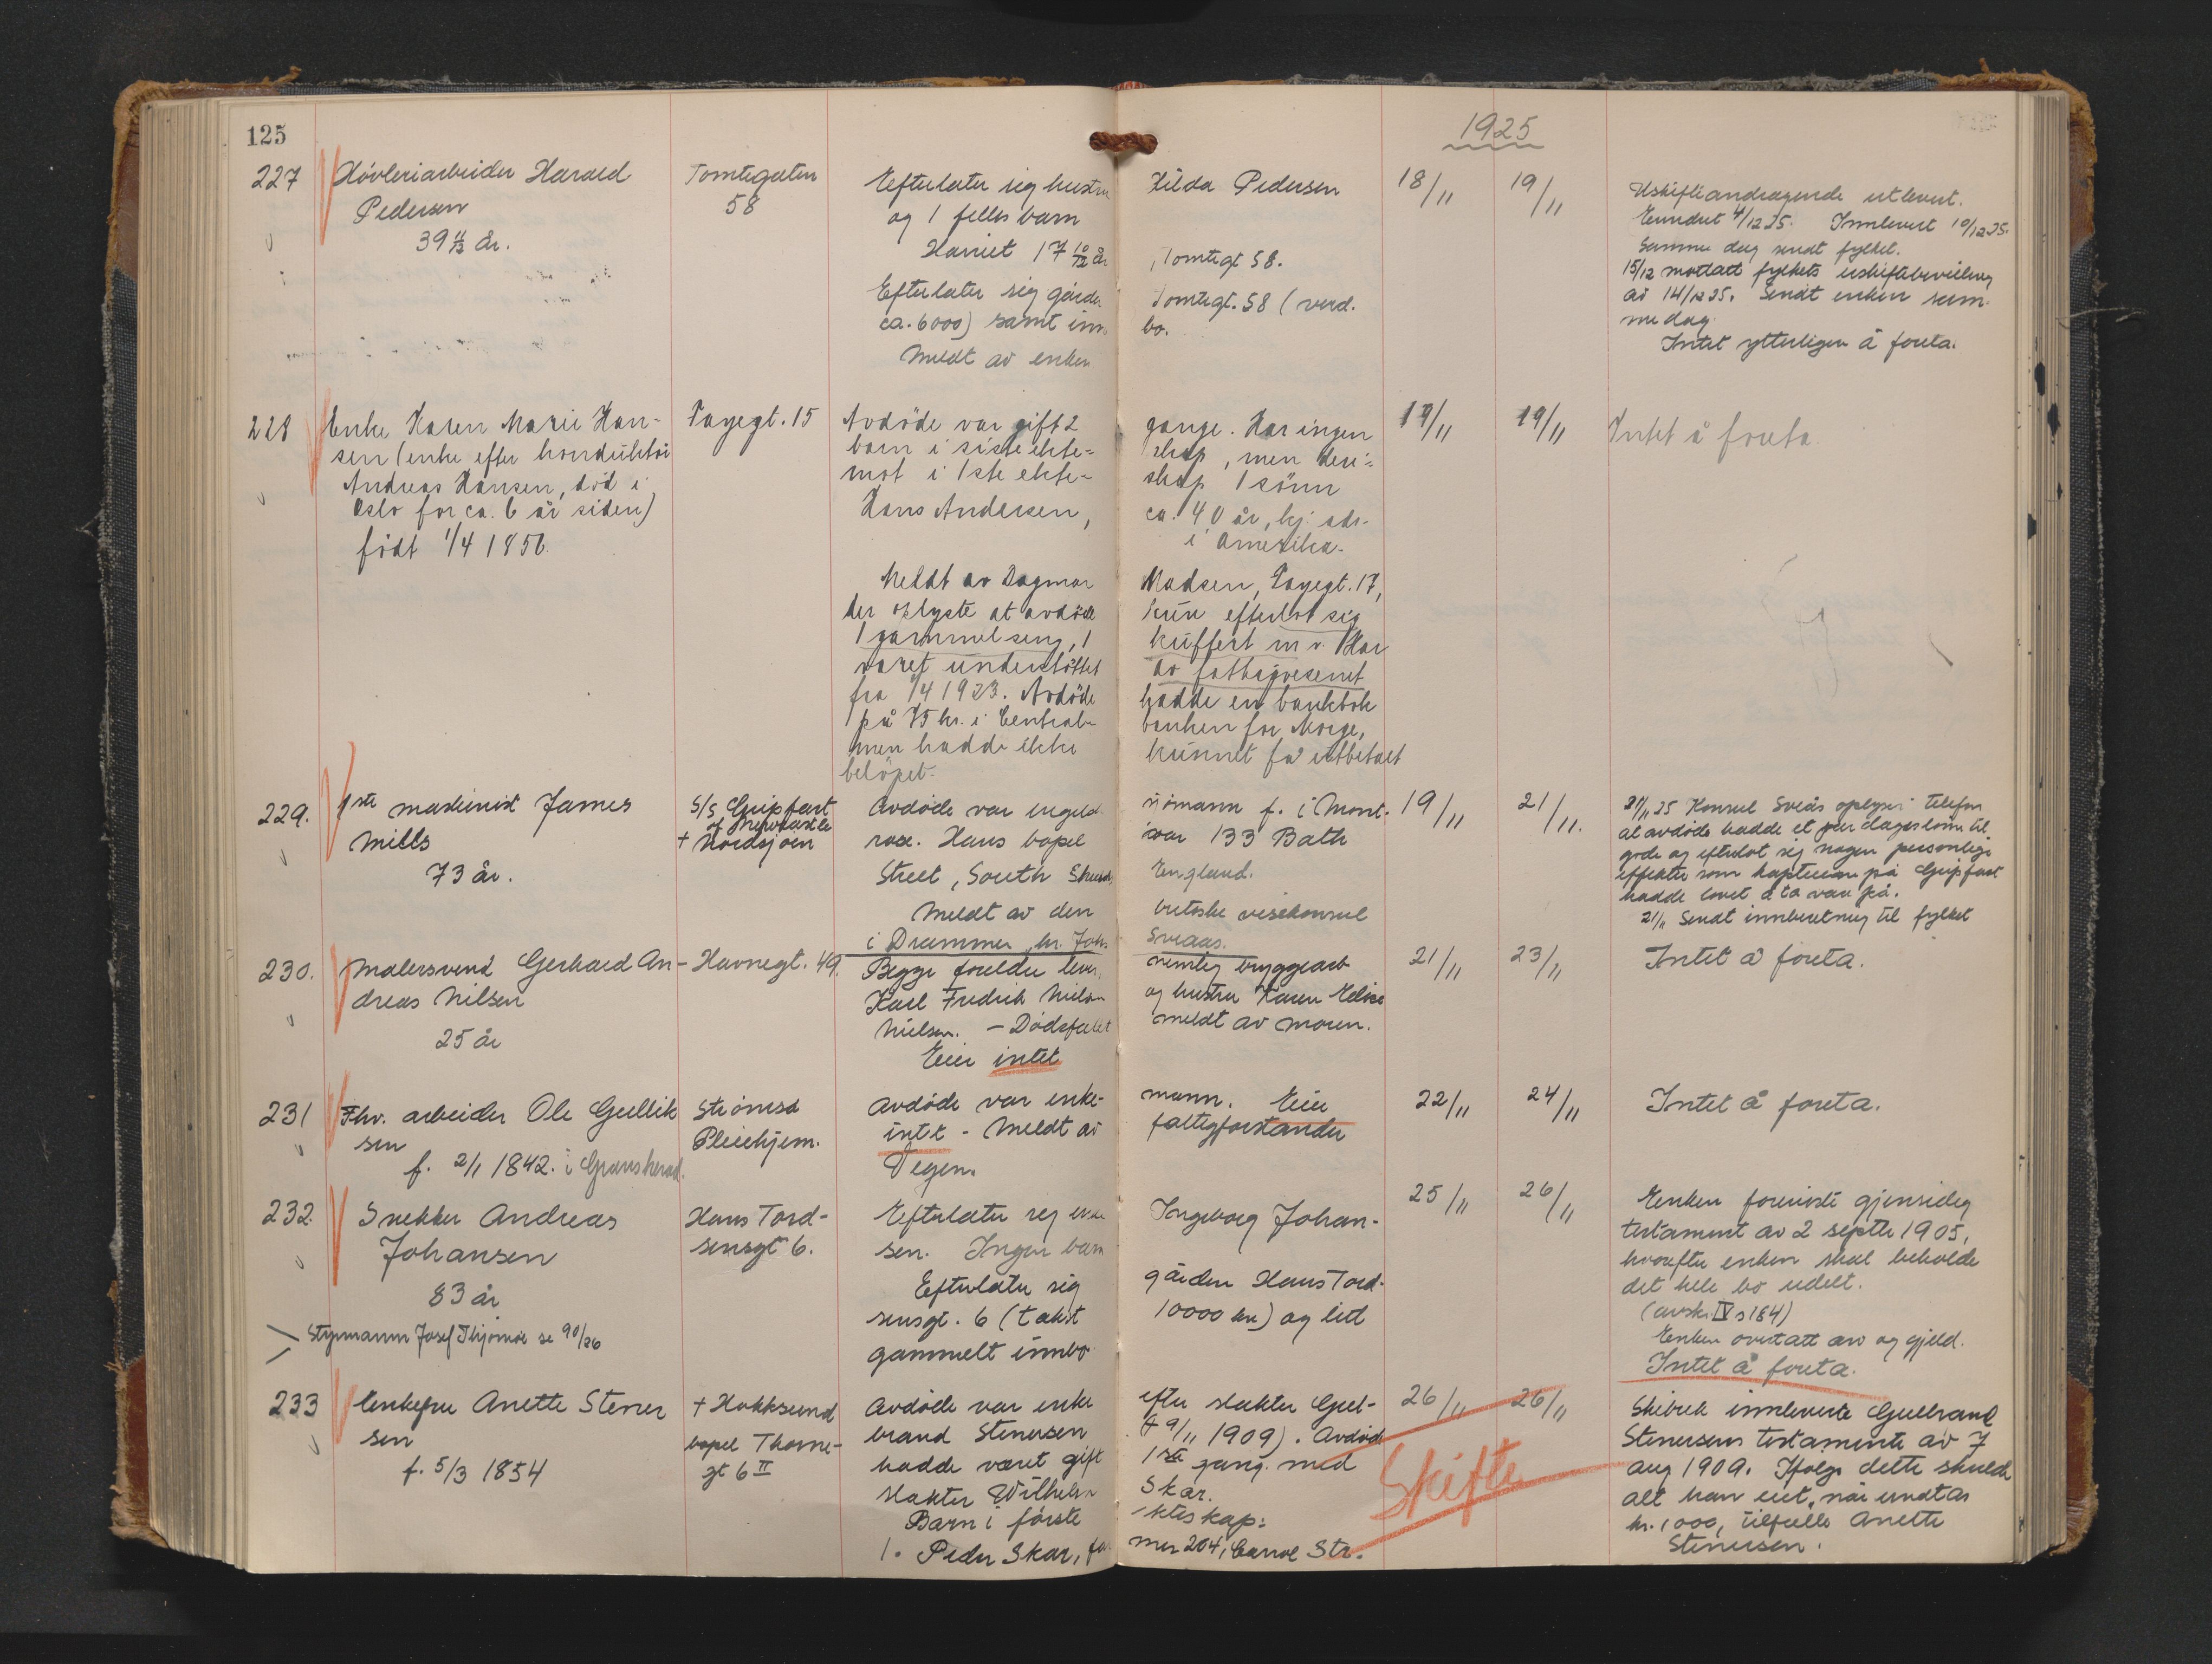 125
1925
227 Høvleriarbeider Harald
Pedersen
39 11/12 år.
Tomtegaten
58
Efterlater sig hustru Hilda Pedersen
og 1 felles barn
Harriet 17 10/12 år Tomtegt 58.
Efterlater sig gården Tomtegt. 58 (verd.
ca. 6000) samt innbo.
Meldt av enken
18/11 19/11
Uskifteandragende utlevert.
4/12 25. Innlevert 10/12 25.
Samme dag sendt fylket.
15/12 mottatt fylkets uskiftebevilling
av 14/12 25. Sendt enken sam-
me dag.
Intet ytterligere å foreta.
228 Enke Karen Marie Han-
sen (enke efter konduktør
Andreas Hansen, død i
Oslo for ca. 6 år siden)
født 1/4 1856.
Fayegt. 15
Avdøde var gift 2 gange. Har ingen
barn i siste ekte= skap, men deri=
mot i 1ste ekte- skap 1 sønn
Hans Andersen, ca. 40 år,
i Amerika.
Meldt av Dagmar Madsen, Fayegt. 17,
der oplyste at avdøde kun efterlot sig
1 gammel seng, 1 kuffert m.v. Har
været understøttet av fattigvesenet
fra 1/4 1923. Avdøde hadde en bankbok
på 75 kr. i Central- banken for Norge,
men hadde ikke kunnet få utbetalt
beløpet.
19/11 19/11
Intet å foreta.
229. 1ste maskinist James
Mills
73 år.
S/S Gripfast
of Newcastle
+ Nordsjøen
Avdøde var ungdomsmann f. i Mont-
rose. Hans bopel var 133 Bath
Street, South Shields, England.
Meldt av den britiske visekonsul
i Drammen hr. Johs Sveaas.
19/11 21/11.
21/11 25 Konsul Sveås oplyser i telefon
at avdøde hadde et par dagers lønn til
gode og efterlot sig nogen personlige
effekter som kapteinen på Gripfast
hadde lovet å ta vare på.
21/11 Sendt innberetning til fylket
230. Malersvend Gerhard An-
dreas Nilsen
25 år
Havnegt. 49.
Begge foreldre lever, nemlig bryggearb
Karl Fredrik Nielsen og hustru Karen Elise
Nielsen. - Dødsfallet meldt av moren.
Eier intet
21/11 23/11
Intet å foreta.
231 Fhv. arbeider Ole Gullik
sen
f. 2/1 1842. i Gransherad.
Strømsø
Pleiehjem.
Avdøde var enke- mann. Eier
intet - Meldt av fattigforstander
Vegen.
22/11 24/11
Intet å foreta.
232. Snekker Andreas
Johansen
83 år
Hans Tord-
sensgt 6.
Efterlater sig enke Ingeborg Johan-
sen. Ingen barn
Efterlater sig gården Hans Tord-
sensgt. 6 (takst 10000 kr) og litt
gammelt innbo
25/11 26/11
Enken foreviste gjensidig
testament av 2 septbr 1905,
hvorefter enken skal beholde
det hele bo udelt.
(avskr. IV s 184)
Enken overtatt arv og gjeld.
Intet å foreta.
Styrmann Josef Thjømøe se 90/26
233 Enkefru Anette Stener
sen
f. 5/3 1854
+ Hokksund
bopel Thorne-
gt 6 II
Avdøde var enke efter slakter Gul-
brand Stenersen (+ 9/11 1909). Avdøde
hadde været gift 1ste gang med
slakter Wilhelm Skar.
Barn i første ekteskap:
1. Peder Skar, farmer 204, Carrol Str.
26/11 26/11
Skifte
innleverte Gulbrand
Stenersens testamente av 7
aug 1909. Ifølge dette skulde
alt han eiet, når undtas
kr. 1000, tilfalle Anette
Stenersen.